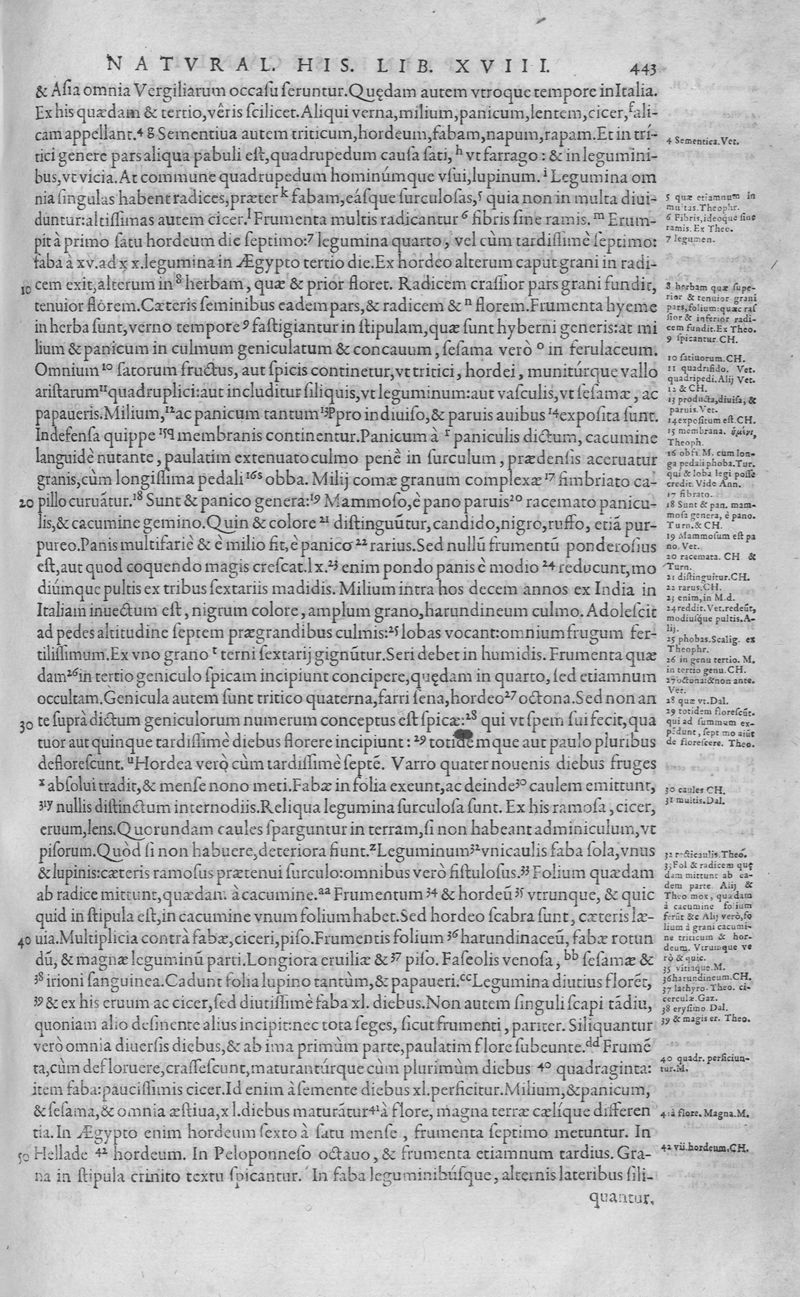 NATVRAL. HIS. LIB. XVIII. 443
& Aſia omnia Vergiliarum occaſu ſeruntur. Quędam autem vtroque tempore in Italia.
Ex his quædam & tertio, véris ſcilicet. Aliqui verna, milium, panicum, lentem, cicer, ᶠali-
cam appellant.⁴ ᵍ Sementiua autem triticum, hordeum, fabam, napum, rapam. Et in tri-
tici genere pars aliqua pabuli eſt, quadrupedum cauſa ſati, ʰ vt farrago: & in legumini-
bus, vt vicia. At commune quadrupedum hominúmque vſui, lupinum. ⁱ Legumina om
nia ſingulas habent radices, præter ᵏ fabam, eáſque ſurculoſas, ⁵ quia non in multa diui-
duntur: altiſſimas autem cicer. ˡ Frumenta multis radicantur ⁶ fibris ſine ramis. ᵐ Erum-
pit à primo ſatu hordeum die ſeptimo: ⁷ legumina quarto, vel cùm tardiſſimè ſeptimo:
faba à xv. ad x x. legumina in Ægypto tertio die. Ex hordeo alterum caput grani in radi-
10 cem exit, alterum in ⁸ herbam, quæ & prior floret. Radicem craſſior pars grani fundit,
tenuior flórem. Cæteris ſeminibus eadem pars, & radicem & ⁿ florem. Frumenta hyeme
in herba ſunt, verno tempore ⁹ faſtigiantur in ſtipulam, quæ ſunt hyberni generis: at mi
lium & panicum in culmum geniculatum & concauum, ſeſama verò ᵒ in ferulaceum.
Omnium ¹⁰ ſatorum fructus, aut ſpicis continetur, vt tritici, hordei, munitúrque vallo
ariſtarum ¹¹ quadruplici: aut includitur ſiliquis, vt leguminum: aut vaſculis, vt ſeſamæ, ac
papaueris. Milium, ¹² ac panicum tantum ¹³ ᵖ pro indiuiſo, & paruis auibus ¹⁴ expoſita ſunt.
Indefenſa quippe ¹⁵ q membranis continentur. Panicum à ʳ paniculis dictum, cacumine
languidè nutante, paulatim extenuato culmo penè in ſurculum, prædenſis aceruatur
granis, cùm longiſſima pedali ¹⁶ ˢ obba. Milij comæ granum complexæ ¹⁷ fimbriato ca-
20 pillo curuãtur. ¹⁸ Sunt & panico genera: ¹⁹ Mammoſo, è pano paruis ²⁰ racemato panicu-
lis, & cacumine gemino. Quin & colore ²¹ diſtinguũtur, candido, nigro, ruffo, etiã pur-
pureo. Panis multifariè & è milio fit, è panico ²² rarius. Sed nullũ frumentũ ponderoſius
eſt, aut quod coquendo magis creſcat. lx. ²³ enim pondo panis è modio ²⁴ reducunt, mo
diúmque pultis ex tribus ſextariis madidis. Milium intra hos decem annos ex India in
Italiam inuectum eſt, nigrum colore, amplum grano, harundineum culmo. Adoleſcit
ad pedes altitudine ſeptem prægrandibus culmis: ²⁵ lobas vocant: omnium frugum fer-
tiliſſimum. Ex vno grano ᵗ terni ſextarij gignũtur. Seri debet in humidis. Frumenta quæ
dam ²⁶ in tertio geniculo ſpicam incipiunt concipere, quędam in quarto, ſed etiamnum
occultam. Genicula autem ſunt tritico quaterna, farri ſena, hordeo ²⁷ octona. Sed non an
30 te ſuprà dictum geniculorum numerum conceptus eſt ſpicæ: ²⁸ qui vt ſpem ſui fecit, qua
tuor aut quinque tardiſſimè diebus florere incipiunt: ²⁹ totidemque aut paulo pluribus
defloreſcunt. ᵘ Hordea verò cùm tardiſſimè ſeptẽ. Varro quater nouenis diebus fruges
ˣ abſolui tradit, & menſe nono meti. Fabæ in folia exeunt, ac deinde ³⁰ caulem emittunt,
³¹ ʸ nullis diſtinctum internodiis. Reliqua legumina ſurculoſa ſunt. Ex his ramoſa, cicer,
eruum, lens. Quorundam caules ſparguntur in terram, ſi non habeant adminiculum, vt
piſorum. Quòd ſi non habuere, deteriora fiunt. ᶻ Leguminum ³² vnicaulis faba ſola, vnus
& lupinis: cæteris ramoſus prætenui ſurculo: omnibus verò fiſtuloſus. ³³ Folium quædam
ab radice mittunt, quædam à cacumine. ᵃᵃ Frumentum ³⁴ & hordeũ ³⁵ vtrunque, & quic
quid in ſtipula eſt, in cacumine vnum folium habet. Sed hordeo ſcabra ſunt, cæteris læ-
40 uia. Multiplicia contrà fabæ, ciceri, piſo. Frumentis folium ³⁶ harundinaceũ, fabæ rotun
dũ, & magnæ leguminũ parti. Longiora eruiliæ & ³⁷ piſo. Faſeolis venoſa, ᵇᵇ ſeſamæ &
³⁸ irioni ſanguinea. Cadunt folia lupino tantùm, & papaueri. ᶜᶜ Legumina diutius florẽt,
³⁹ & ex his eruum ac cicer, ſed diutiſſimè faba xl. diebus. Non autem ſinguli ſcapi tãdiu,
quoniam alio deſinente alius incipit: nec tota ſeges, ſicut frumenti, pariter. Siliquantur
verò omnia diuerſis diebus, & ab ima primùm parte, paulatim flore ſubeunte. ᵈᵈ Frumẽ
ta, cùm defloruere, craſſeſcunt, maturantúrque cùm plurimùm diebus ⁴⁰ quadraginta:
item faba: pauciſſimis cicer. Id enim à ſemente diebus xl. perficitur. Milium, & panicum,
& ſeſama, & omnia æſtiua, xl. diebus maturãtur ⁴¹ à flore, magna terræ cælíque differen
tia. In Ægypto enim hordeum ſexto à ſatu menſe, frumenta ſeptimo metuntur. In
50 Hellade ⁴² hordeum. In Peloponneſo octauo, & frumenta etiamnum tardius. Gra-
na in ſtipula crinito textu ſpicantur. In faba leguminibúſque, alternis lateribus ſili-
quantur.
4 Sementica. Vet.
5 quæ etiamnum in
multas. Theophr.
6 Fibris, ideoque ſine
ramis. Ex Theo.
7 legumen.
8 herbam quæ ſupe-
rior & tenuior grani
pars, folium: quæ craſ
ſior & inferior radi-
cem fundit. Ex Theo.
9 ſpicantur CH.
10 ſatiuorum. CH.
11 quadrifido. Vet.
quadripedi. Alij Vet.
12 & CH.
13 producta, diuiſa, &
paruis. Vet.
14 expoſitum eſt CH.
15 membrana.
Theoph.
16 obſi M. cum lon-
ga pedali phoba. Tur.
qui & loba legi poſſe
credit. Vide Ann.
17 fibrato.
18 Sunt & pan. mam-
moſa genera, è pano.
Turn. & CH.
19 Mammoſum eſt pa
no. Vet.
20 racemata. CH &
Turn.
21 diſtinguitur. CH.
22 rarus. CH.
23 enim, in M. d.
24 reddit. Vet. redeũt,
modiuſque pultis. A-
lij.
25 phobas. Scalig. ex
Theophr.
26 in genu tertio. M.
in tertio genu. CH.
27 octona: & non ante.
Vet.
28 quæ vt. Dal.
29 totidem floreſcũt.
qui ad ſummum ex-
pedunt, ſept mo aiũt
de floreſcere. Theo.
30 caules CH.
31 multis. Dal.
32 recticaulis. Theo.
33 Fol & radicem quę
dam mittunt ab ea-
dem parte. Alij &
Theo mox, quædam
à cacumine folium
ferũt &c Alij verò, fo
lium à grani cacumi-
ne triticum & hor-
deum. Vtrumque ve
rò & quic.
35 vtrinque. M.
36 harundineum. CH.
37 lathyro. Theo. ci-
cerculæ. Gaz.
38 eryſimo Dal.
39 & magis er. Theo.
40 quadr. perficiun-
tur. M.
41 à flore. Magna. M.
42 vii. hordeum. CH.